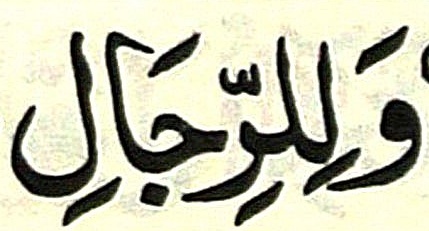 وَلِلرِّجَالِ